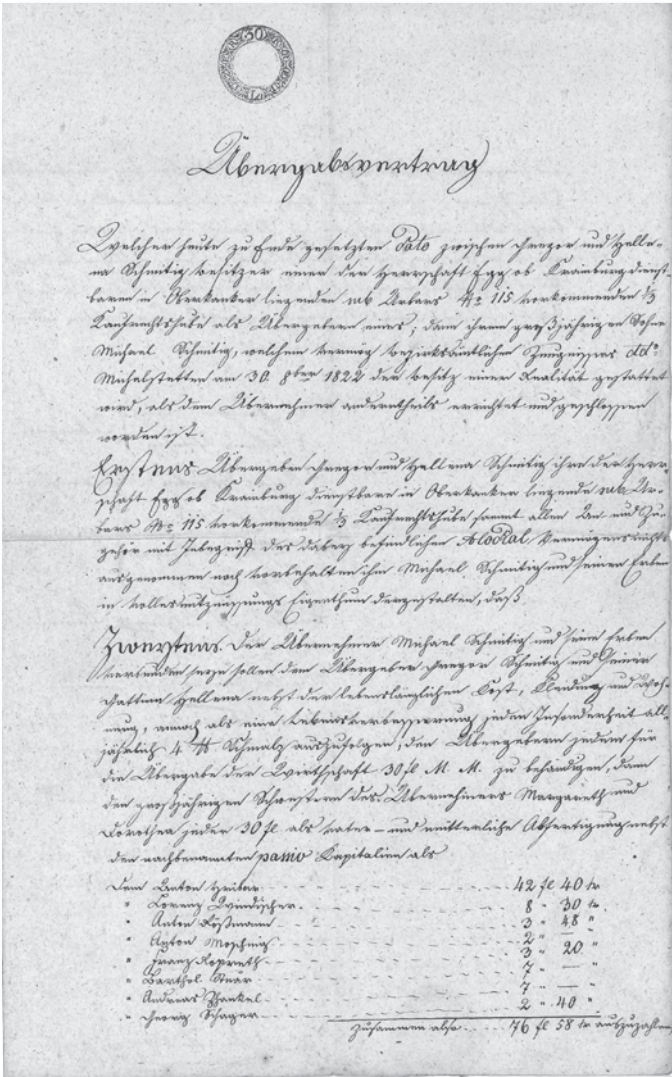 30
Übergabsvertrag
Welcher heute zu Ende gesetzten Dato zwischen Gregor und Helle-
na Schmitig Besitzer einer der Herrschaft Egg ob Krainburg dienst-
baren in Oberkanker liegenden sub Urbars No 115 vorkommenden 1/3
Kaufrechtshube als Übergebern eines; dann ihrem großjährigen Sohne
Michael Schmitig, welchem vermög bezirksämtlichen Zeugnisses ddo
Michelstetten am 30. 8ber 1822 der Besitz einer Realität gestattet
wird, als dem Übernehmer anderntheils errichtet und geschlossen
worden ist.
Erstens Übergeben Gregor und Hellena Schmitig ihre der Herr-
schaft Egg ob Krainburg dienstbare in Oberkanker liegende sub Ur-
bars No 115 vorkommende 1/3 Kaufrechtshube sammt allen An- und Zu-
gehör mit Inbegriff des dabey befindlichen Alodial Vermögens nichts
ausgenommen noch vorbehalten ihm Michael Schmitig und seinen Erben
in volles nutznüssungs Eigenthum dergestalten, daß
Zweytens. Der Übernehmer Michael Schmitig und seine Erben
verbunden seyn sollen dem Übergeber Gregor Schmitig und seiner
Gattinn Hellena nebst der lebenslänglichen Kost, Kleidung und Woh-
nung, annoch als eine Lebensverbesserung jedem Insonderheit all-
jährlich 4 ℔ Schmalz auszufolgen, den Übergebern zudem für
die Übergabe der Wirthschaft 30 fl M. M. zu behändigen, dann
den großjährigen Schwestern des Übernehmers Margareth und
Dorothea jeder 30 fl als vater- und mütterliche Abfertigung nebst
den nachbenannten Kapitalien als
Dem Anton Hribar 42 fl 40 kr
" Lorenz Windischer 8 " 30 kr
" Anton 3 " 48 "
" Anton Moschnig 2 " — "
" Franz 3 " 20 "
" Barthol. 7 " — "
" Andreas 7 " — "
" Georg Schager 2 " 40 "
Zusammen also 76 fl 58 kr auszuzahlen